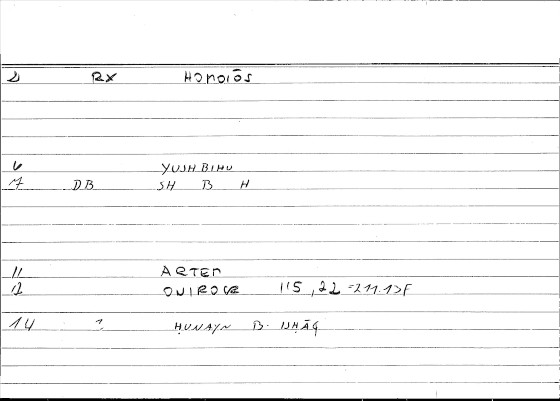 2 RX HOMOIŌS
6 YUSHBIHU
7 DB SH B H
11 ARTEM
12 ONIROCR 115,22 =211.13F
14 ? ḤUNAYN B. ISḤĀQ